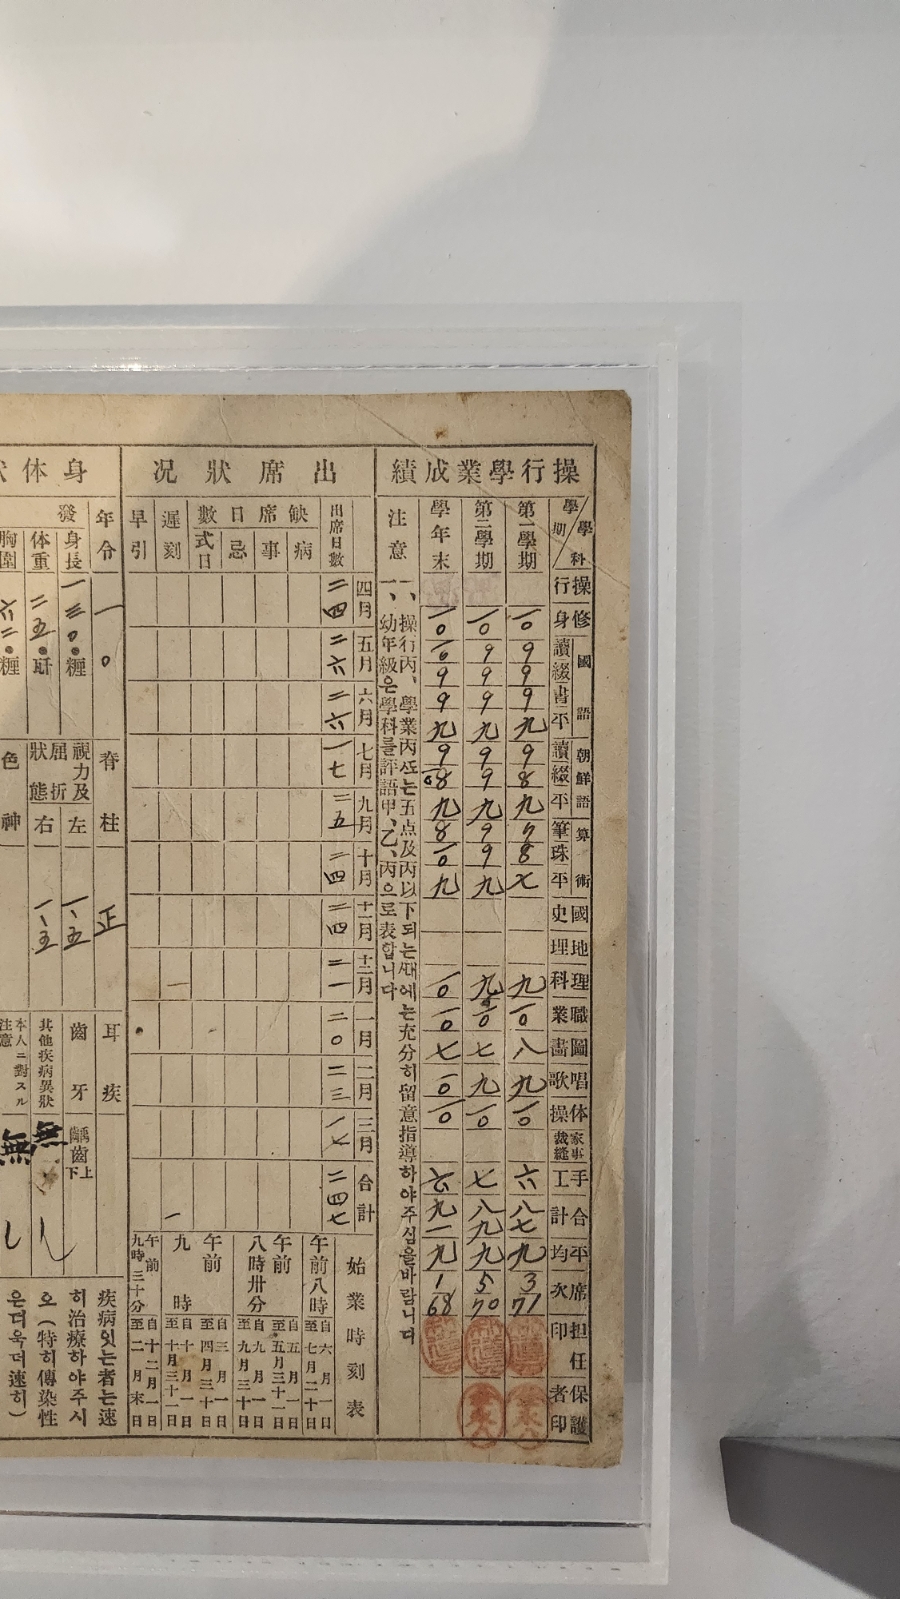 操行學業成績
學期／學科
操行
修身
國語
讀
綴
書
平
朝鮮語
讀
綴
平
算術
筆
珠
平
國史
地理
理科
職業
圖畵
唱歌
体操
家事裁縫
手工
合計
平均
席次
担任印
保護者印
第一學期
一〇
9
9
9
九
9
8
九
7
8
七
九
一〇
八
九
一〇
六
八七
九
3
71
第二學期
一〇
9
9
9
九
9
9
九
9
9
九
九
一〇
七
九
一〇
七
八九
九
5
70
學年末
一〇
9
9
九
9
8
九
8
一〇
九
一〇
一〇
七
一〇
一〇
六
九一
九
1
68
注意
一、操行丙、學業丙또는五点及丙以下되는때에는充分히留意指導하야주심을바람니다
一、幼年級은學科를評語甲、乙、丙으로表합니다
出席狀況
出席日數
缺席日數
病
事
忌
式日
遲刻
早引
四月
二四
五月
二六
六月
二六
七月
一七
九月
二五
十月
二四
十一月
二四
十二月
二一
一
一月
二〇
二月
二三
三月
一七
合計
二四七
一
始業時刻表
午前八時
自六月一日
至七月二十日
午前八時卅分
自五月一日
至五月三十一日
自九月一日
至九月三十日
午前九時
自三月一日
至四月三十日
自十月一日
至十月三十一日
午前九時三十分
自十二月一日
至二月末日
身体狀
年令
一〇
發
身長
一三〇・糎
体重
二五・瓩
胸圍
六二・糎
脊柱
正
視力及屈折狀態
左
一、五
右
一、五
色神
耳疾
齒牙
齲齒
上
下
其他疾病異狀
無
本人ニ對スル注意
無
疾病잇는者는速
히治療하야주시
오(特히傳染性
은더욱더速히)